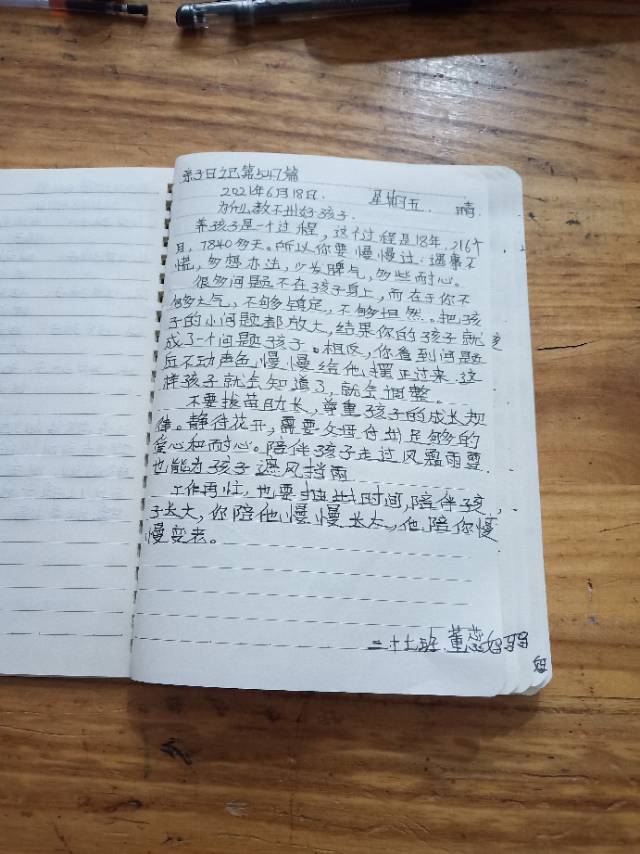 亲子日记第547篇
2021年6月18日. 星期五. 晴.
为什么教不出好孩子.
养孩子是一个过程，这个过程是18年，216个
月，7840多天。所以你要慢慢过：遇事不
慌，多想办法，少发脾气，多些耐心。
很多问题不在孩子身上，而在于你不
够大气，不够镇定，不够坦然。把孩
子的小问题都放大，结果你的孩子就变
成了一个问题孩子。相反，你看到问题
后不动声色，慢慢给他摆正过来，这
样孩子就会知道了，就会调整。
不要拔苗助长，尊重孩子的成长规
律。静待花开，需要父母付出足够的
爱心和耐心。陪伴孩子走过风霜雨雪.
也能为孩子遮风挡雨
工作再忙，也要抽出时间，陪伴孩
子长大，你陪他慢慢长大，他陪你慢
慢变老。
二十七班 董蕊妈妈